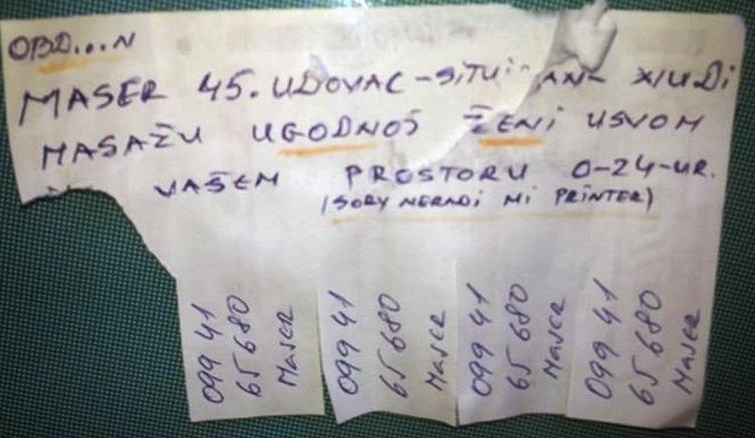 OBD...N
MASER 45. UDOVAC - SITU AN- XIUDI
MASAŽU UGODNOŠ ŽENI USVOM
VAŠEM PROSTORU 0-24-UR.
(SORY NERADI MI PRINTER)
099 41
65 680
MASER
099 41
65 680
MASER
099 41
65 680
MASER
099 41
65 680
MASER